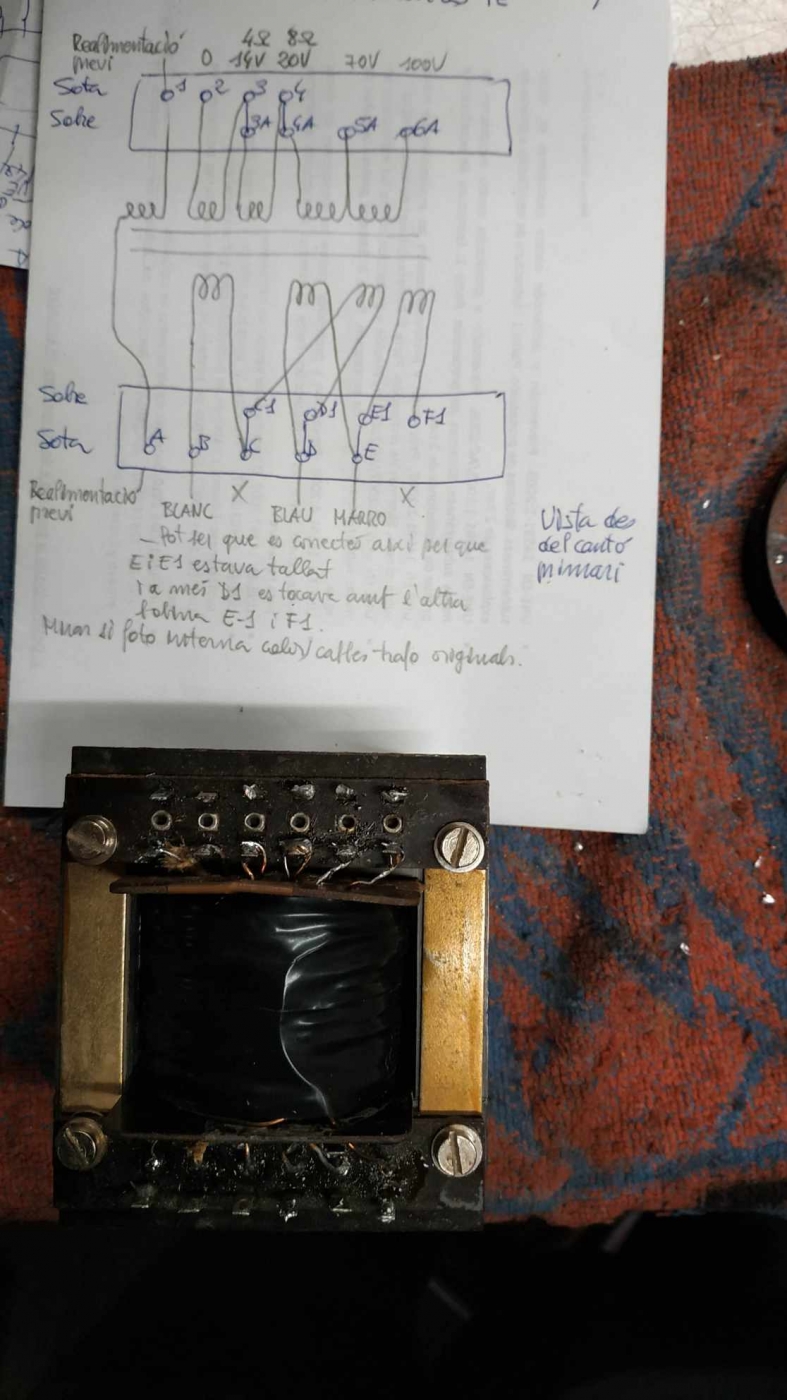 Realimentació 4Ω 8Ω
previ 0 14V 20V 70V 100V
Sota 1 2 3 4
Sobre 3A 4A 5A 6A
Sobre C1 D1 E1 F1
Sota A B C D E
Realimentació X X
previ BLANC BLAU MARRO
- Pot ser que es conectés així perque
E i E1 estava tallat
i a més D1 es tocava amb l'altra
bobina E-1 i F1.
Mirar si foto interna color cables trafo originals.
Vista des
del cantó
primari